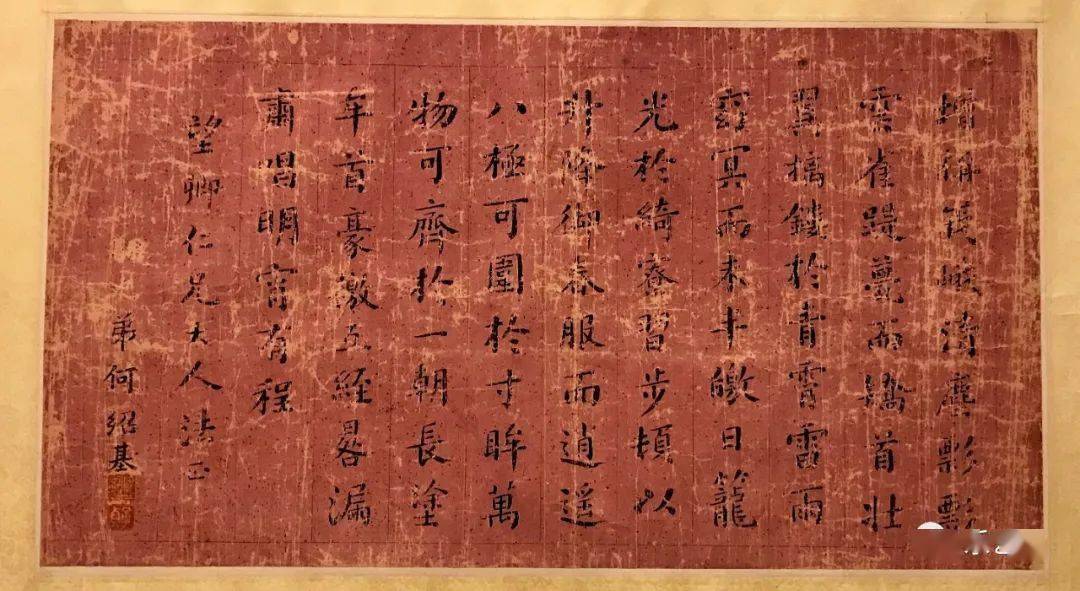 清塵影影
雲雀踶甍而矯首壯
翼摛鏤於青霄雷雨
窈冥而未半皦日籠
光於綺寮習步頓以
升降御春服而逍遥
八極可圍於寸眸萬
物可齊於一朝長塗
牟首豪徼互經晷漏
肅唱明宵有程
望卿仁兄大人法正
弟何紹基